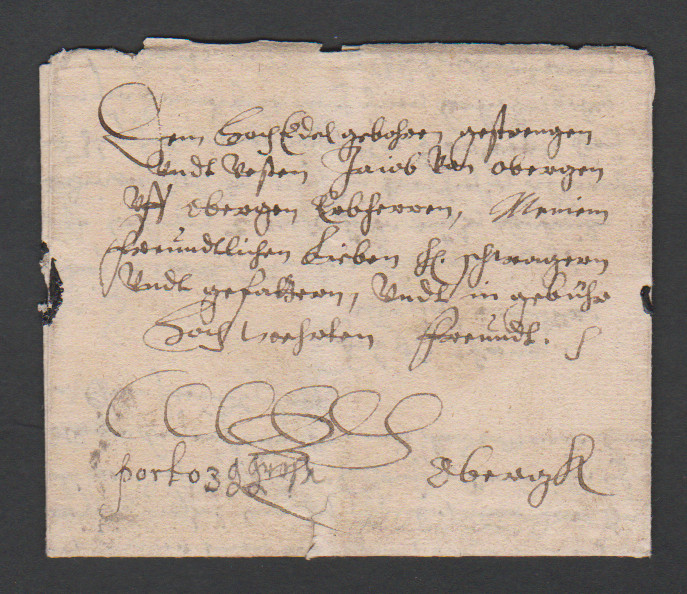 Dem HochEdel gebohren gestrengen
Undt Vesten Jacob Von Obergen
Uff Obergen Erbherren, Meinem
freündtlichen Lieben H. schwagern
Undt gefattern, Undt in gebühr
Hoch Wehrten freündt.
porto 3 gg
Obergk